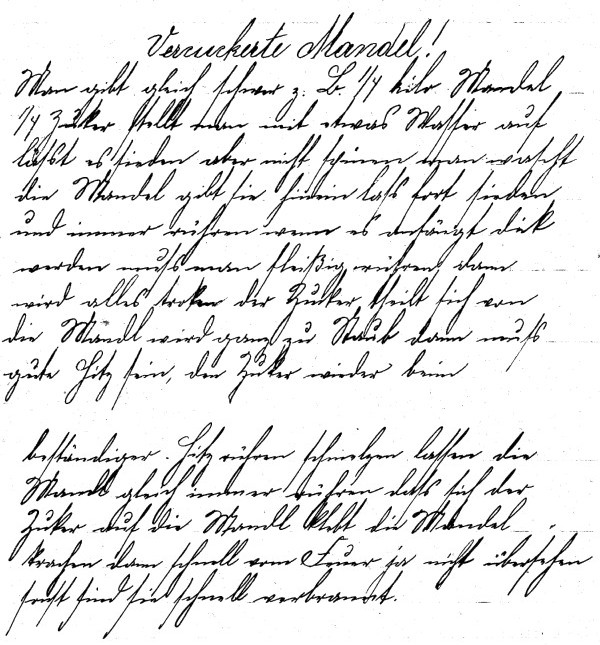 Verzuckerte Mandel!
Man gibt gleich schwer z. B. 1/4 kilo Mandel
1/4 Zuker stellt man mit etwas Wasser auf
lässt es sieden aber nicht spinen man wascht
die Mandel gibt sie hinein lass fort sieden
und immer rühren wenn es anfängt dick
werden muss man fleißig rühren, dann
wird alles troken der Zucker theilt sich von
die Mandl wird ganz zu Staub dann muss
gute Hitz sein, den Zuker wieder beim
beständiger Hitz rühren schmelzen lassen die
Mandl gleich immer rühren dass sich der
Zuker auf die Mandl klebt die Mandel
krachen dann schnell vom Feuer ja nicht übersehen
sonst sind sie schnell verbrannt.